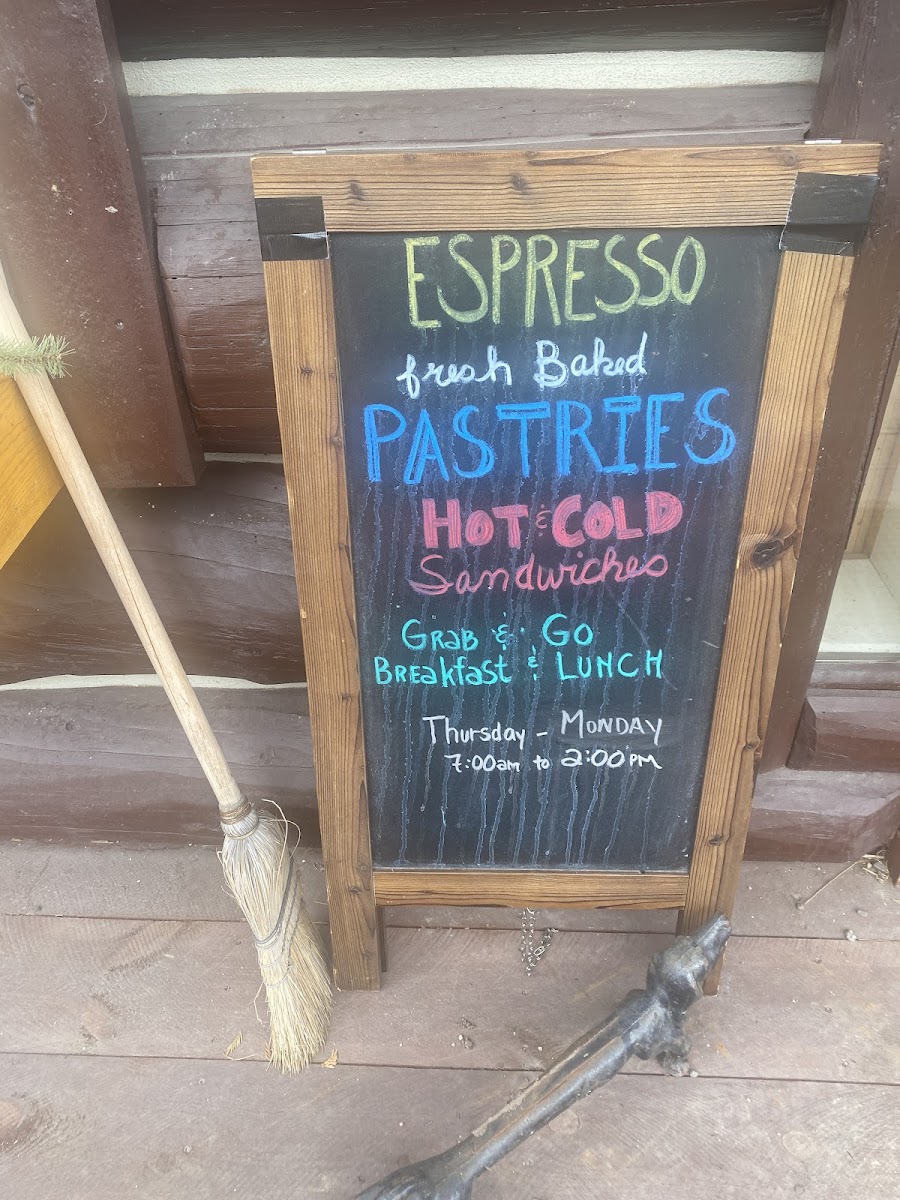 ESPRESSO
fresh Baked
PASTRIES
HOT & COLD
Sandwiches
GRAB & GO
BREAKfast & LUNCH
Thursday - MONDAY
7:00am to 2:00PM